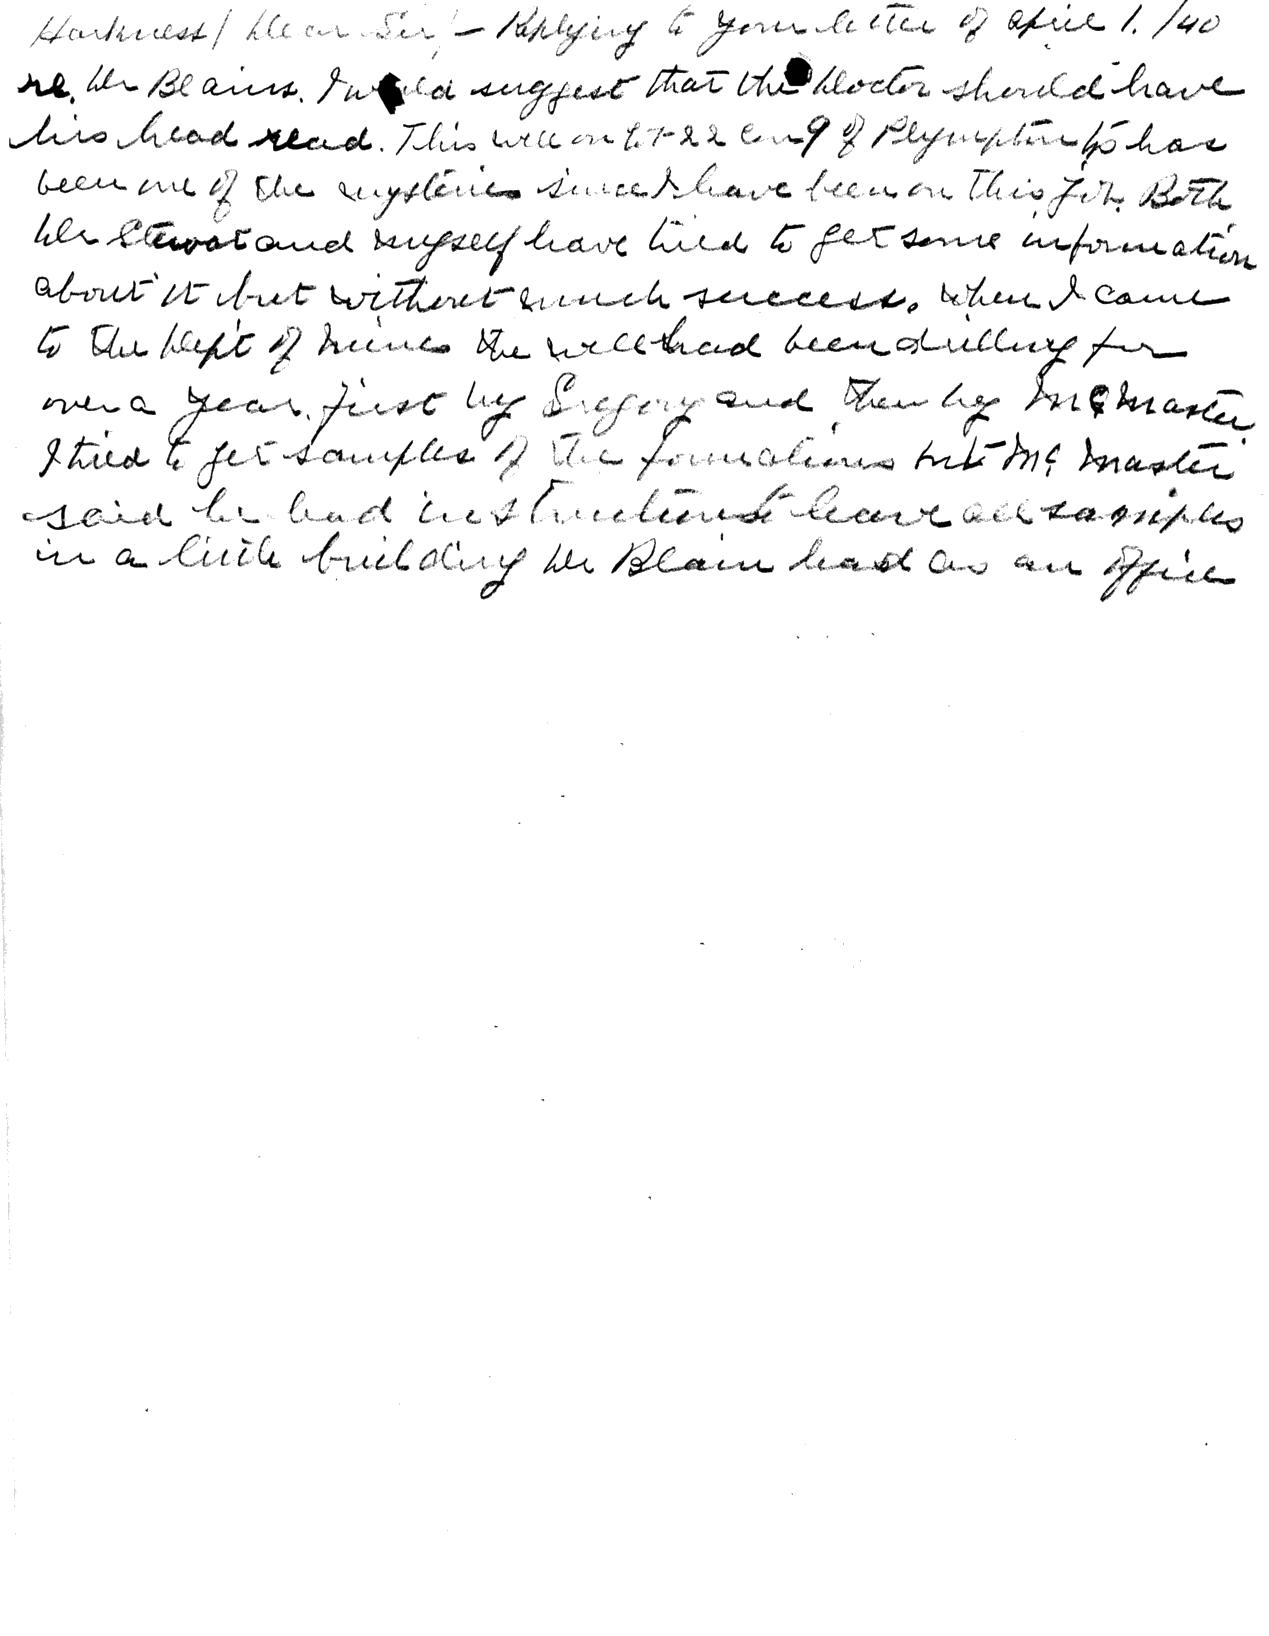 Harkness / Dear Sir:- Replying to your letter of April 1./40
re. Dr Blains. I would suggest that the Doctor should have
his head read. This well on Lt-22 Con 9 of Plympton tp has
been one of the mysteries since I have been on this job. Both
Dr Stewart and myself have tried to get some information
about it but without much success. When I came
to the Dept of Mines the well had been drilling for
over a year, first by Gregory and then by McMaster.
I tried to get samples of the formations but McMaster
said he had instructions to leave all samples
in a little building Dr Blain had as an office